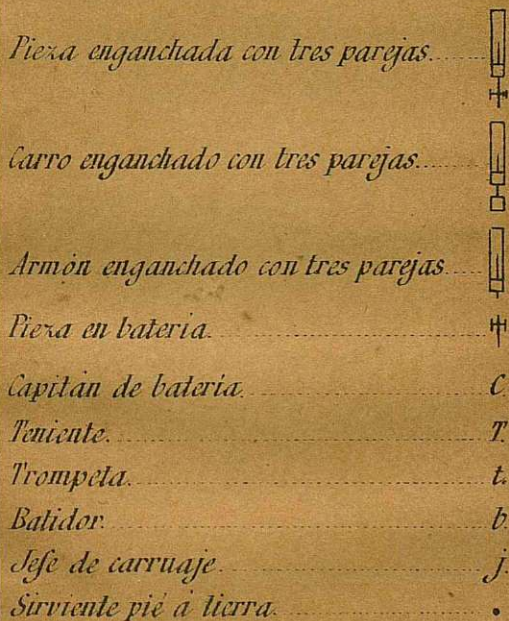 Pieza enganchada con tres parejas.
Carro enganchado con tres parejas.
Armón enganchado con tres parejas.
Pieza en batería.
Capitán de batería. C.
Teniente. T.
Trompeta. t.
Batidor. b.
Jefe de carruaje. j.
Sirviente pié á tierra.